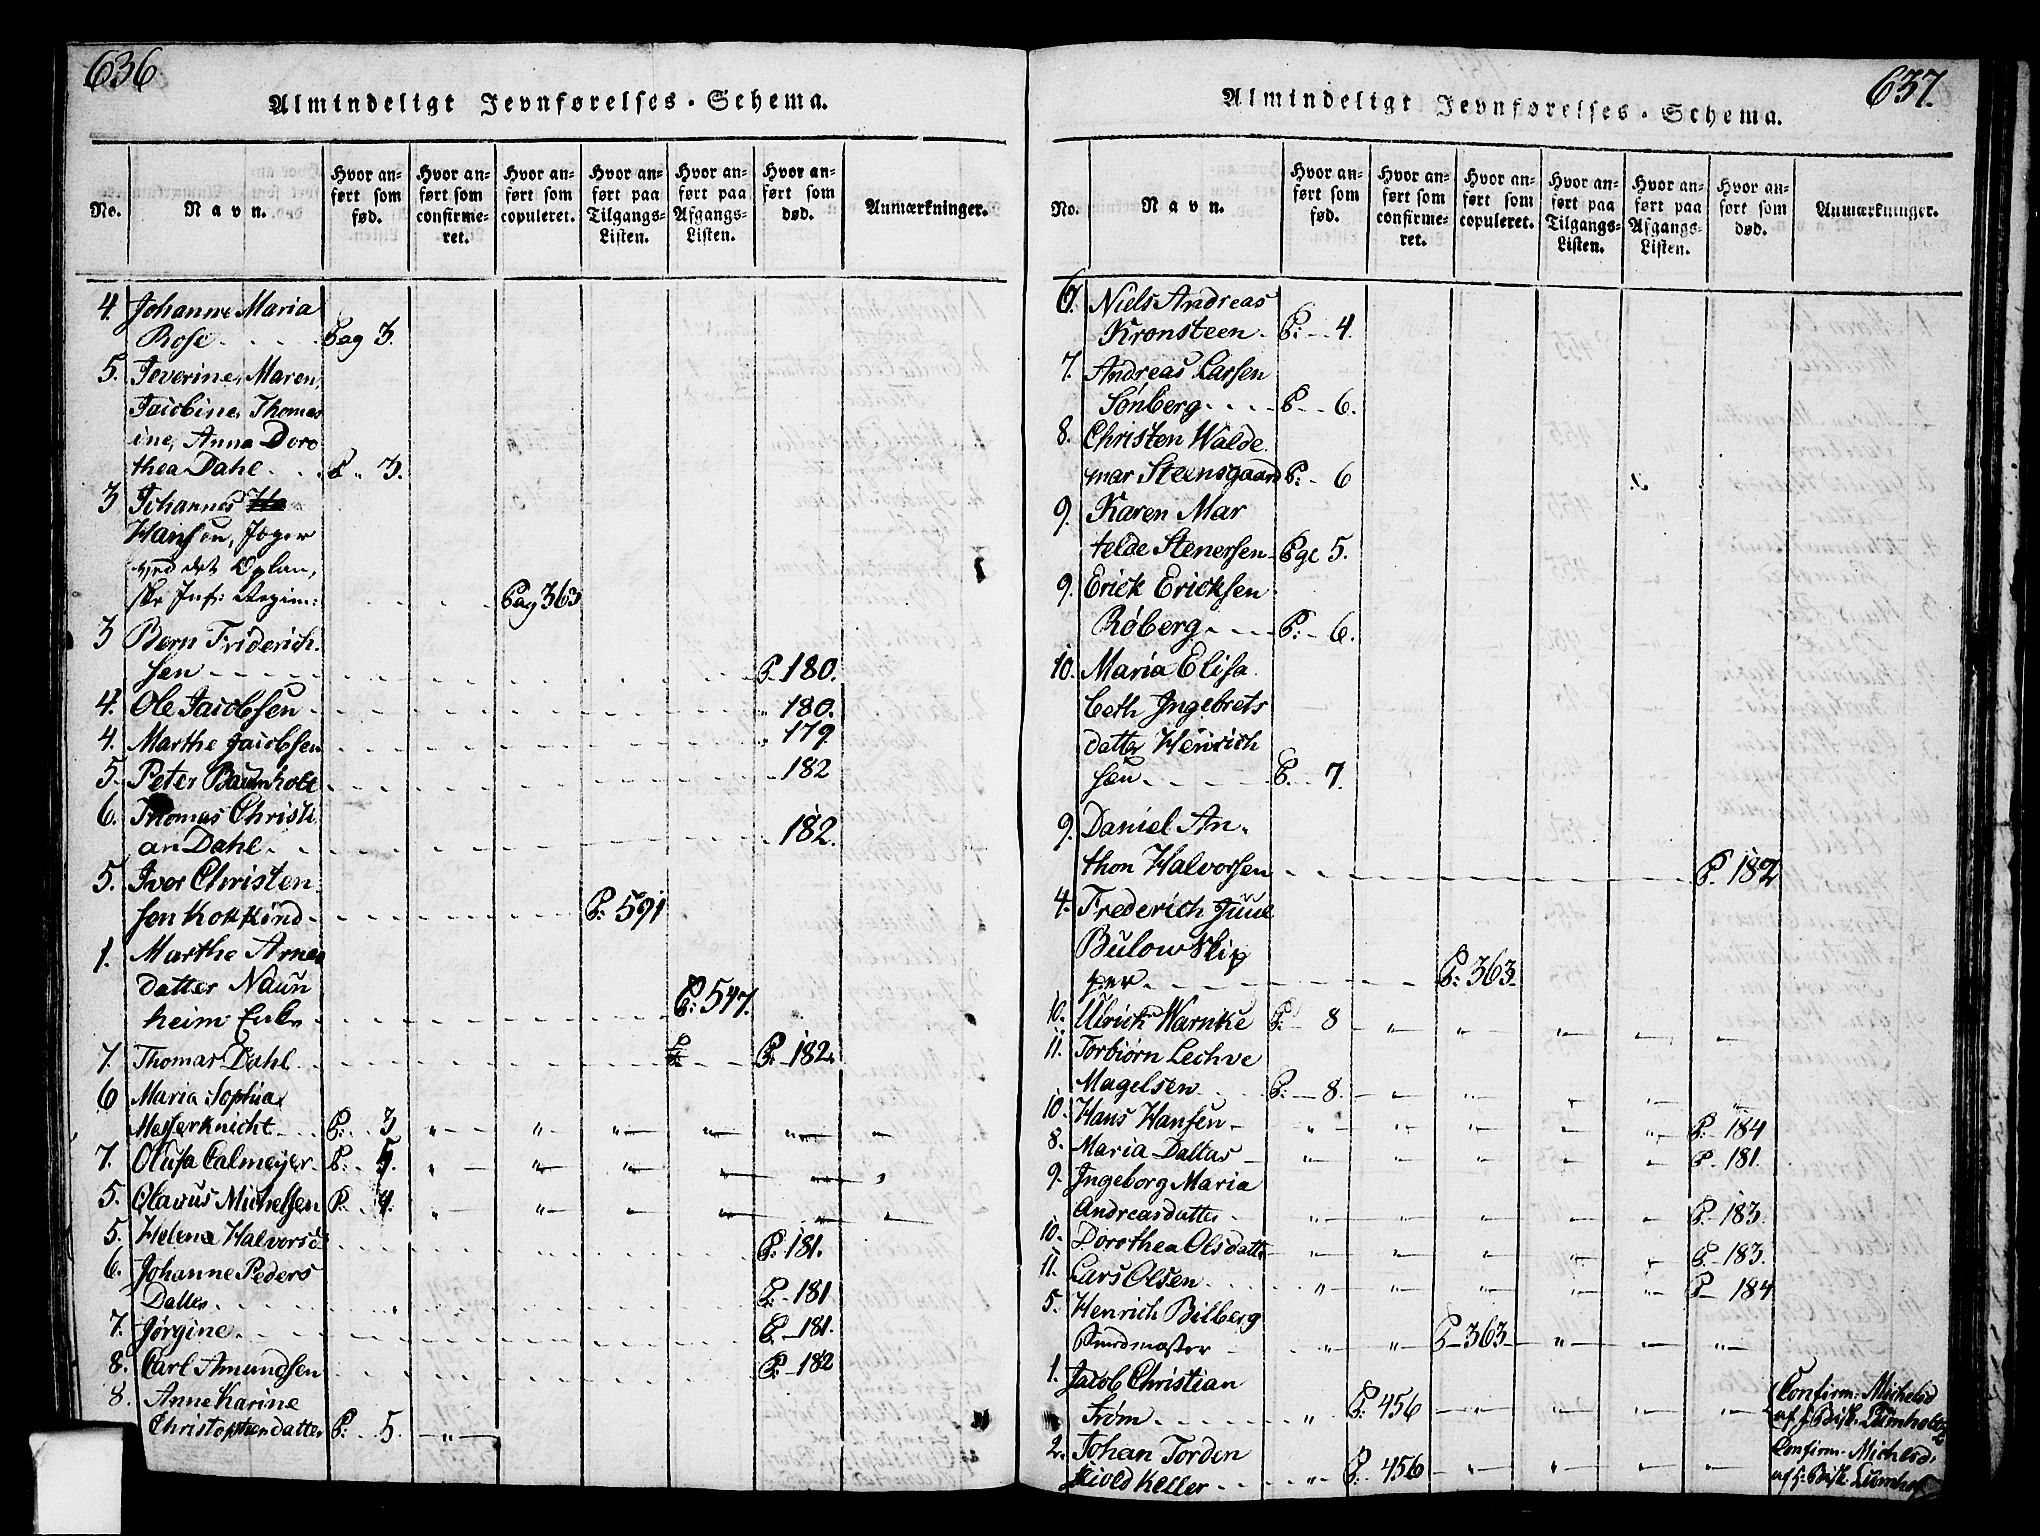 636
Almindeligt Jevnførelses-Schema.
No.
Navn.
Hvor anført som fød.
Hvor anført som confirmeret.
Hvor anført som copuleret.
Hvor anført paa Tilgangs-Listen.
Hvor anført paa Afgangs-Listen.
Hvor anført som død.
Anmærkninger.
4. Johanne Maria
Rose Pag 3.
5. Severine, Maren,
Jacobine, Thomas
ine, Anna Doro
thea Dahl P. 3.
3 Johannes
Hansen, Jæger
ved det Oplan,
ske Inf: Regim: Pag 363
3 Bern Friderich
sen P. 180.
4. Ole Jacobsen 180.
4. Marthe Jacobsen 179
5. Peter Baumholt 182
6. Thomas Christi
an Dahl 182.
5. Iver Christen
sen Kokkind P: 591
1. Marthe Arne
datter Naun
heim Enke P: 547.
7. Thomas Dahl P. 182.
6 Maria Sophia
Messerknicht P: 3
7. Olufa Calmeyer P. 5.
5. Olavus Michelsen P. 4.
5. Helena Halvorsd P: 181.
6. Johanne Peders
Datter P. 181
7. Jørgine P. 181.
8. Carl Amundsen P. 182
8. Anne Karine
Christophersdatter P. 5.
637.
Almindeligt Jevnførelses-Schema.
No.
Navn.
Hvor anført som fød.
Hvor anført som confirmeret.
Hvor anført som copuleret.
Hvor anført paa Tilgangs-Listen.
Hvor anført paa Afgangs-Listen.
Hvor anført som død.
Anmærkninger.
6. Niels Andreas
Kronsteen P: 4.
7. Andreas Larsen
Sønberg P 6.
8. Christen Walde
mar Steensgaard P: 6
9. Karen Mar
telde Stenersen Pge 5.
9. Erick Ericksen
Røberg P: 6.
10. Maria Elisa
beth Ingebrets
datter Henrich
sen P. 7.
9. Daniel An
thon Halvorsen P. 182
4. Frederich Juul
Bülow Skip
per P: 363
10. Ulrich Warnke P. 8
11. Torbiørn Lechve
Magelsen P: 8.
10. Hans Hansen P. 184
8. Maria Daltas P. 181.
9. Ingeborg Maria
Andreasdatter P. 183.
10. Dorothea Olsdatter P. 183.
11. Lars Olsen P. 184
5. Henrich Bilberg
P. 363
1. Jacob Christian
Strøm P. 456 Confirm: Michelsd
af
2. Johan Torden
skiold Keller P. 456 Confirm: Michelsd.
af